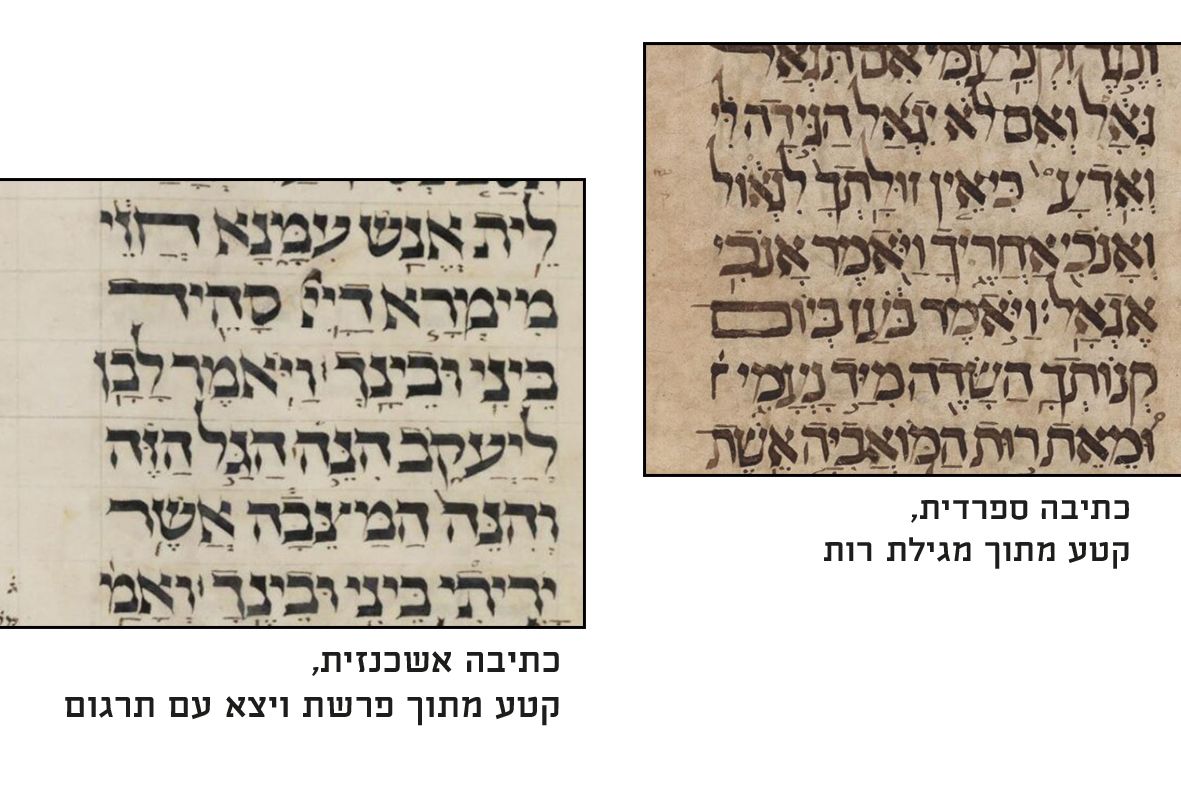 וְנֶגֶד זִקְנֵי עַמִּי אִם תִּגְאַל
גְּאָל וְאִם לֹא יִגְאַל הַגִּידָה לִּי
וְאֵדְעָ כִּי אֵין זוּלָתְךָ לִגְאוֹל
וְאָנֹכִי אַחֲרֶיךָ וַיֹּאמֶר אָנֹכִי
אֶגְאָל׃ וַיֹּאמֶר בֹּעַז בְּיוֹם
קְנוֹתְךָ הַשָּׂדֶה מִיַּד נָעֳמִי
וּמֵאֵת רוּת הַמּוֹאֲבִיָּה אֵשֶׁת
כתיבה ספרדית,
קטע מתוך מגילת רות
לֵית אֱנַשׁ עִמָּנָא חֲזֵי
מֵימְרָא דַייָ סָהִיד
בֵּינִי וּבֵינָךְ׃ וַיֹּאמֶר לָבָן
לְיַעֲקֹב הִנֵּה הַגַּל הַזֶּה
וְהִנֵּה הַמַּצֵּבָה אֲשֶׁר
יָרִיתִי בֵּינִי וּבֵינֶךָ׃ וַאֲמַ
כתיבה אשכנזית,
קטע מתוך פרשת ויצא עם תרגום